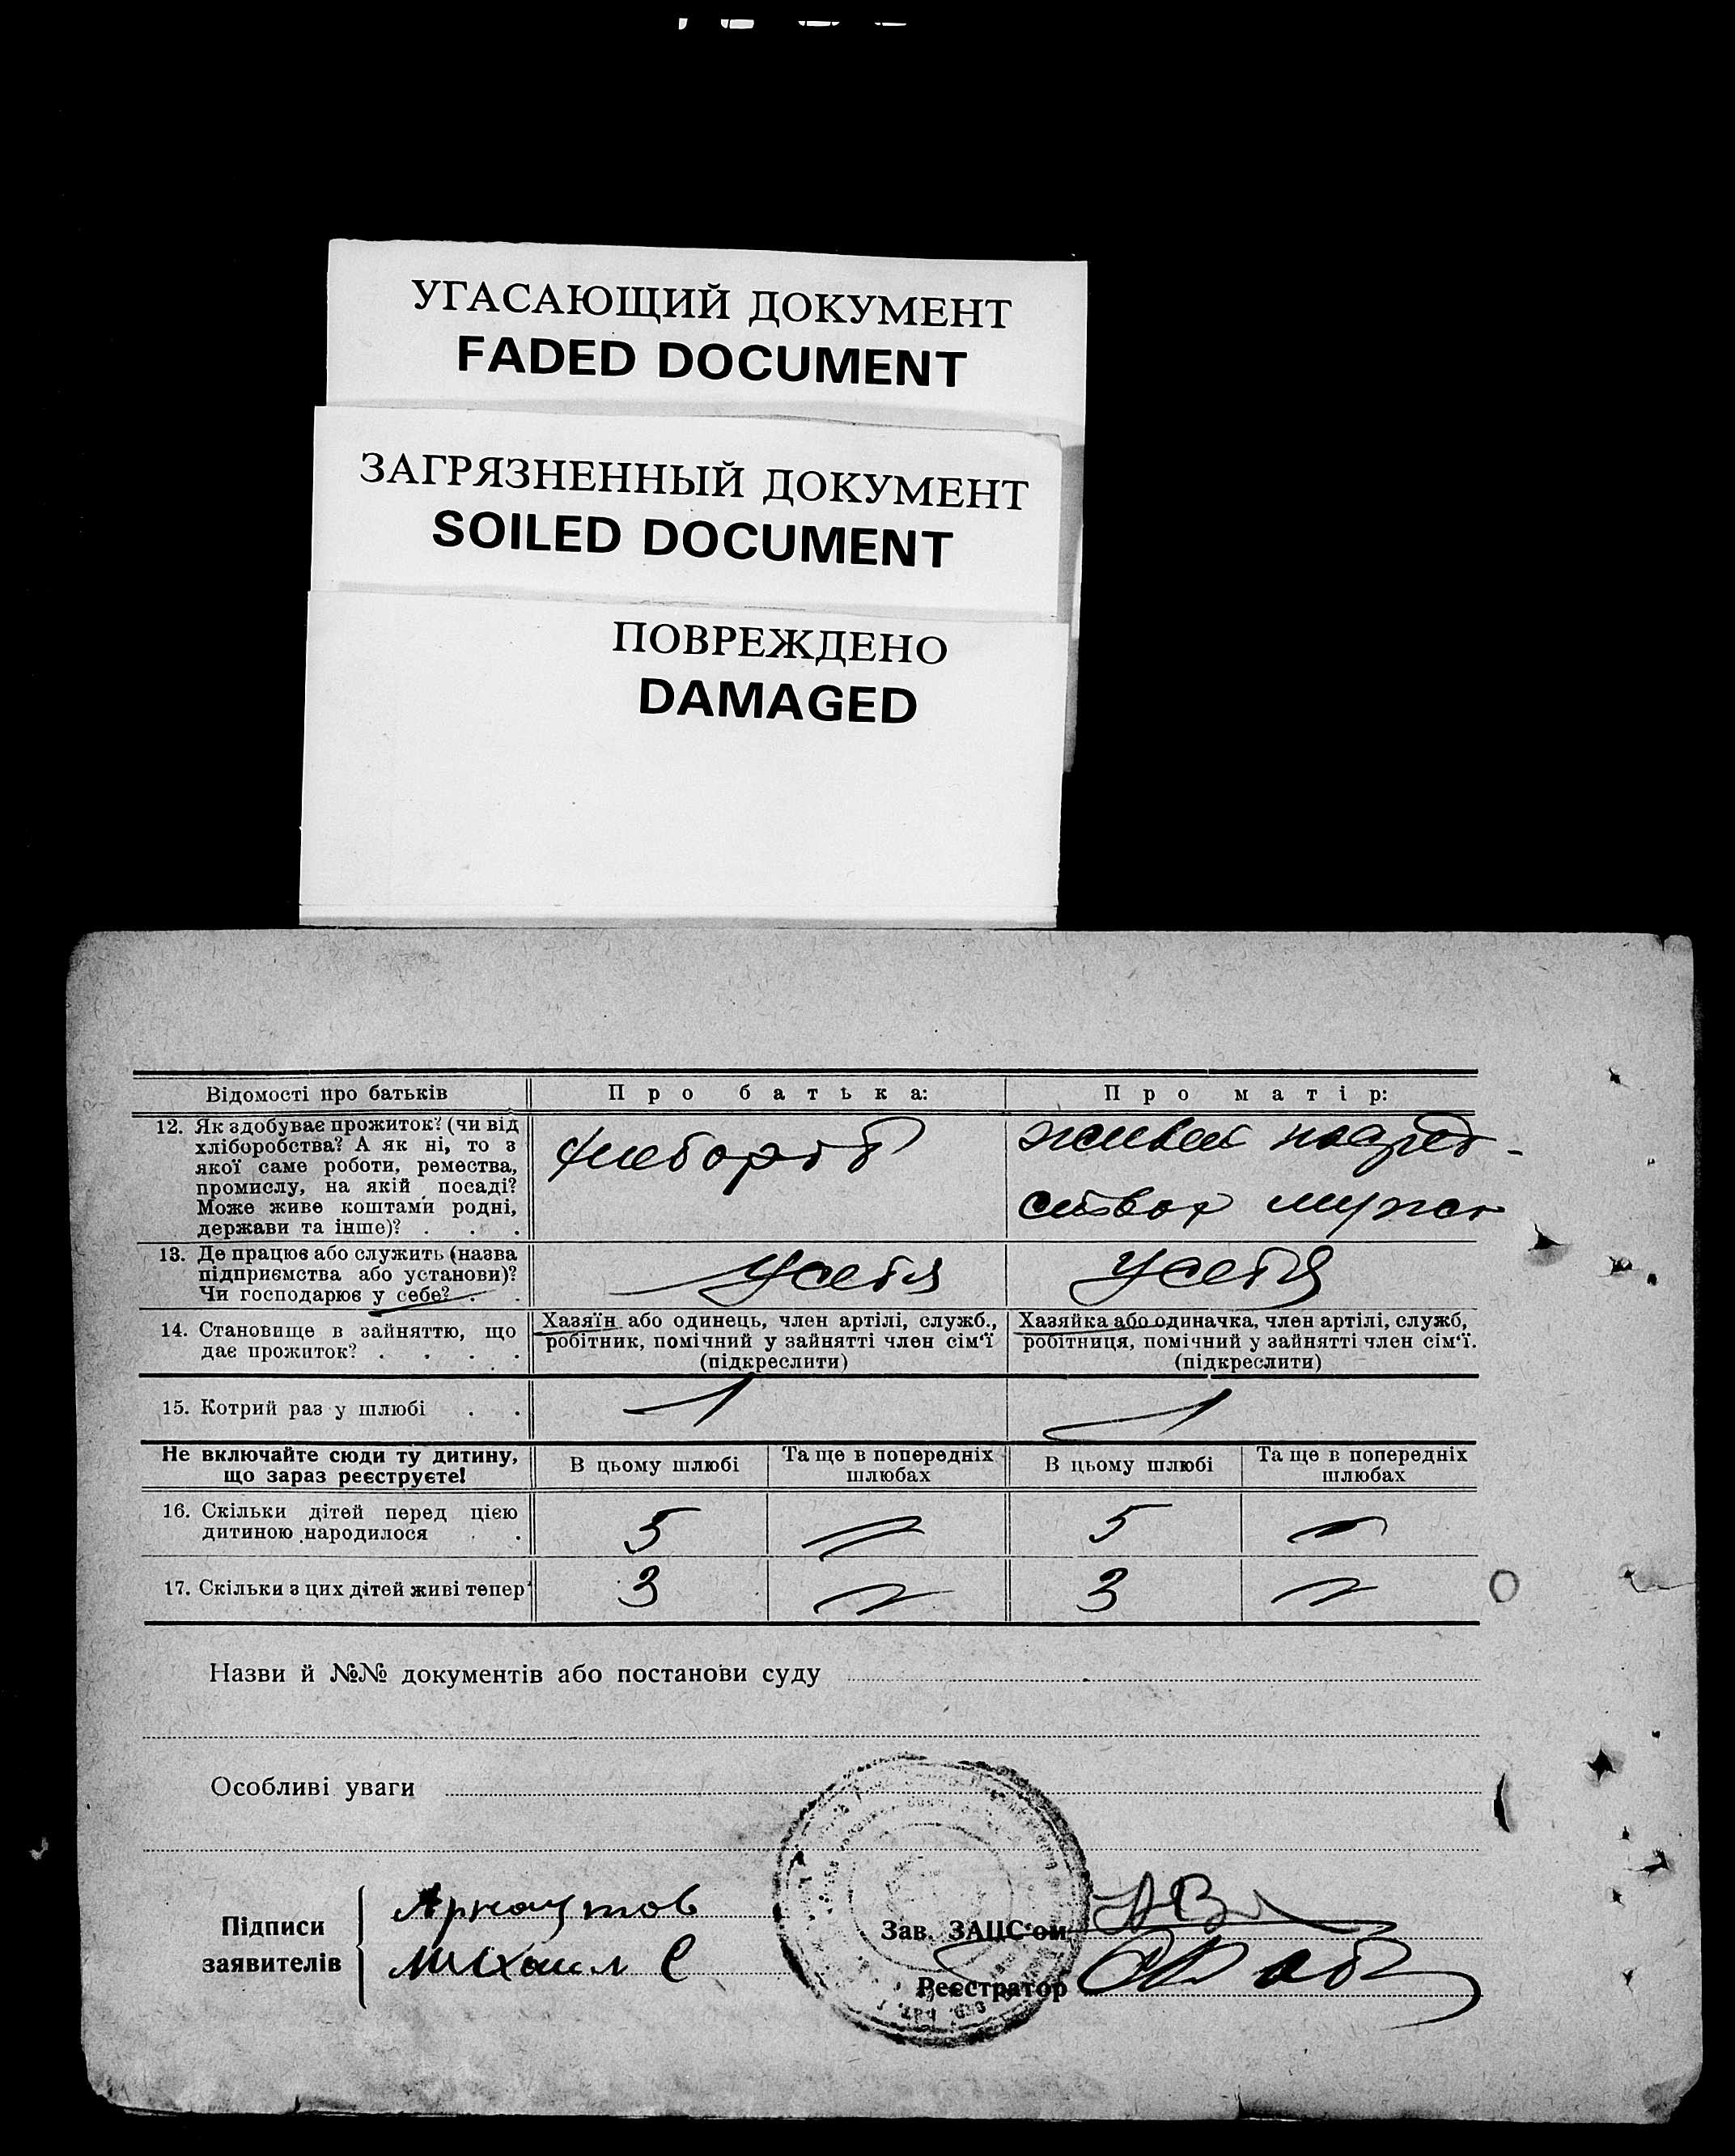 УГАСАЮЩИЙ ДОКУМЕНТ
FADED DOCUMENT
ЗАГРЯЗНЕННЫЙ ДОКУМЕНТ
SOILED DOCUMENT
ПОВРЕЖДЕНО
DAMAGED
Відомості про батьків
Про батька:
Про матір:
12. Як здобуває прожиток? (чи від
хліборобства? А як ні, то з
якої саме роботи, ремества,
промислу, на якій посаді?
Може живе коштами родні,
держави та інше)? . . .
живет
мужа
13. Де працює або служить (назва
підприємства або установи)?
Чи господарює у себе? . .
У себя
У себя
14. Становище в зайняттю, що
дає прожиток? . . . .
Хазяїн або одинець, член артілі, служб.,
робітник, помічний у зайнятті член сім'ї
(підкреслити)
Хазяйка або одиначка, член артілі, служб,
робітниця, помічний у зайнятті член сім'ї.
(підкреслити)
15. Котрий раз у шлюбі . .
1
1
Не включайте сюди ту дитину,
що зараз реєструєте!
В цьому шлюбі
Та ще в попередніх
шлюбах
В цьому шлюбі
Та ще в попередніх
шлюбах
16. Скільки дітей перед цією
дитиною народилося . .
5
5
17. Скільки з цих дітей живі тепер
3
3
Назви й №№ документів або постанови суду
Особливі уваги
Підписи
заявителів
Арнаутов
Михаил С
Зав. ЗАЦС'ом
Реєстратор